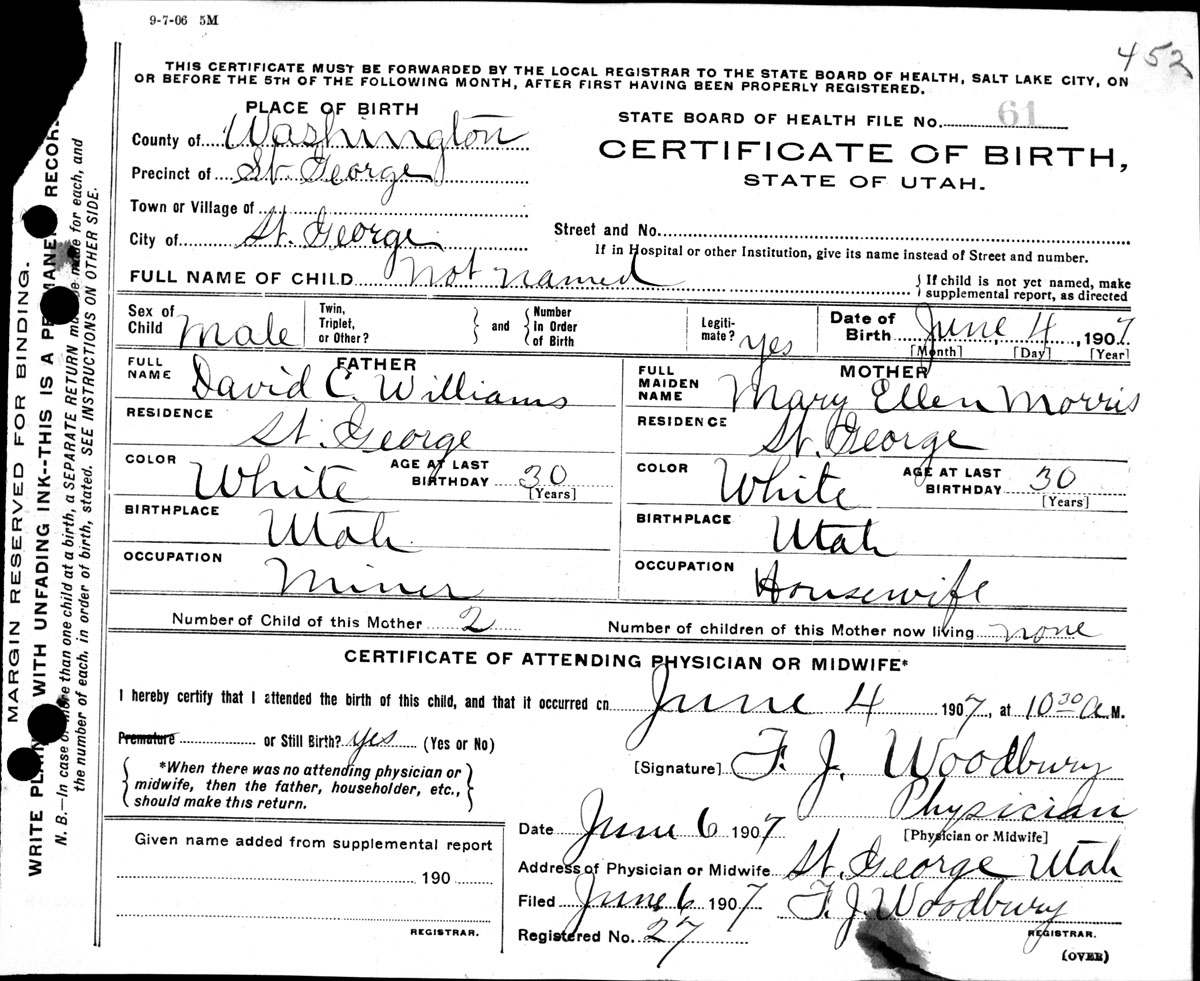 9-7-06 5M
452
THIS CERTIFICATE MUST BE FORWARDED BY THE LOCAL REGISTRAR TO THE STATE BOARD OF HEALTH, SALT LAKE CITY, ON
OR BEFORE THE 5TH OF THE FOLLOWING MONTH, AFTER FIRST HAVING BEEN PROPERLY REGISTERED.
PLACE OF BIRTH
STATE BOARD OF HEALTH FILE No. 61
County of Washington
CERTIFICATE OF BIRTH,
STATE OF UTAH.
Precinct of St. George
Town or Village of
City of St. George
Street and No.
If in Hospital or other Institution, give its name instead of Street and number.
FULL NAME OF CHILD Not named
{If child is not yet named, make
supplemental report, as directed
Sex of Child Male
Twin, Triplet, or Other? } and { Number In Order of Birth
Legiti-mate? yes
Date of Birth June 4, 1907
[Month] [Day] [Year]
FATHER
FULL NAME David C. Williams
RESIDENCE St. George
COLOR White AGE AT LAST BIRTHDAY 30
[Years]
BIRTHPLACE Utah
OCCUPATION Miner
MOTHER
FULL MAIDEN NAME Mary Ellen Morris
RESIDENCE St. George
COLOR White AGE AT LAST BIRTHDAY 30
[Years]
BIRTHPLACE Utah
OCCUPATION Housewife
Number of Child of this Mother 2 Number of children of this Mother now living none
CERTIFICATE OF ATTENDING PHYSICIAN OR MIDWIFE*
I hereby certify that I attended the birth of this child, and that it occurred on June 4 1907, at 10 30 A. M.
Premature or Still Birth? yes (Yes or No)
{*When there was no attending physician or
midwife, then the father, householder, etc.,
should make this return.}
[Signature] F. J. Woodbury
Physician
[Physician or Midwife]
Date June 6 1907
Address of Physician or Midwife St. George Utah
Filed June 6 1907 F. J. Woodbury
REGISTRAR.
Registered No. 27
(OVER)
Given name added from supplemental report
190
REGISTRAR.
MARGIN RESERVED FOR BINDING.
WRITE PLAIN WITH UNFADING INK--THIS IS A PERMANENT RECORD
N. B.—In case of more than one child at a birth, a SEPARATE RETURN must be made for each, and
the number of each, in order of birth, stated. SEE INSTRUCTIONS ON OTHER SIDE.